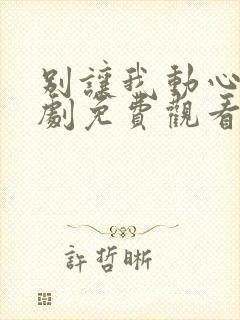 別讓我動心
劇免費觀看
許哲晰